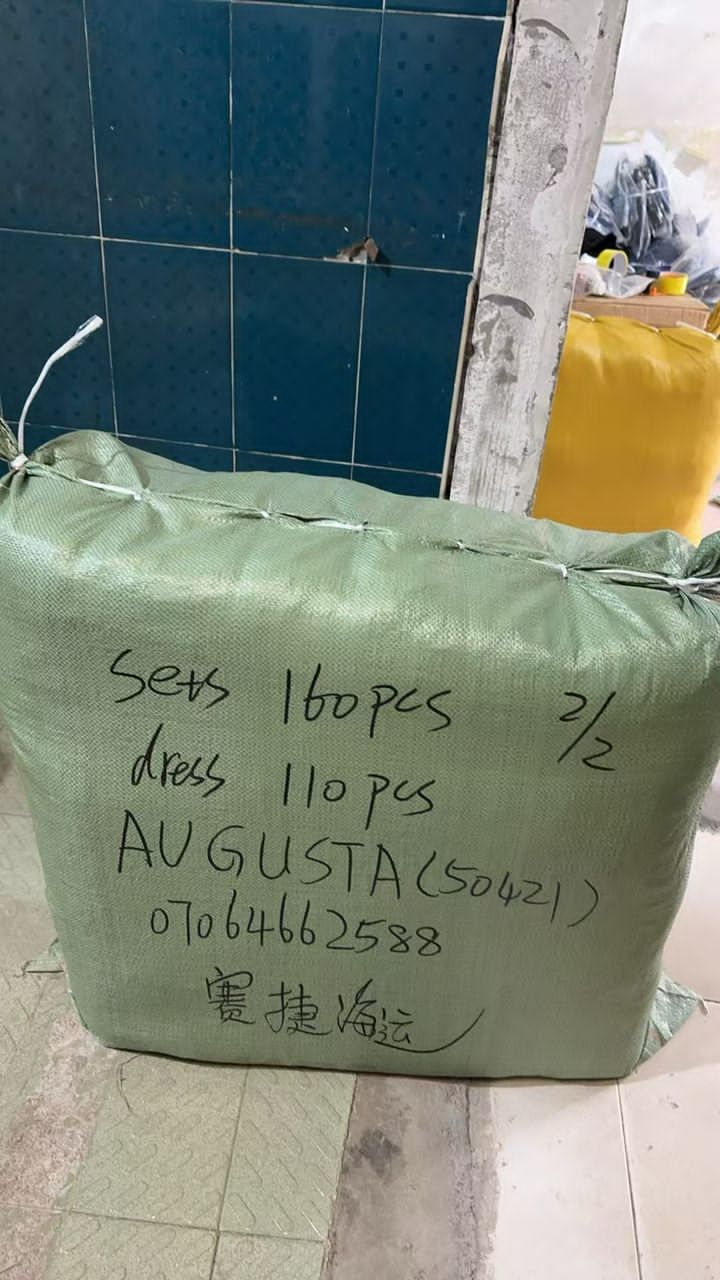 sets 160pcs 2/2
dress 110pcs
AUGUSTA(50421)
07064662588
赛捷海运